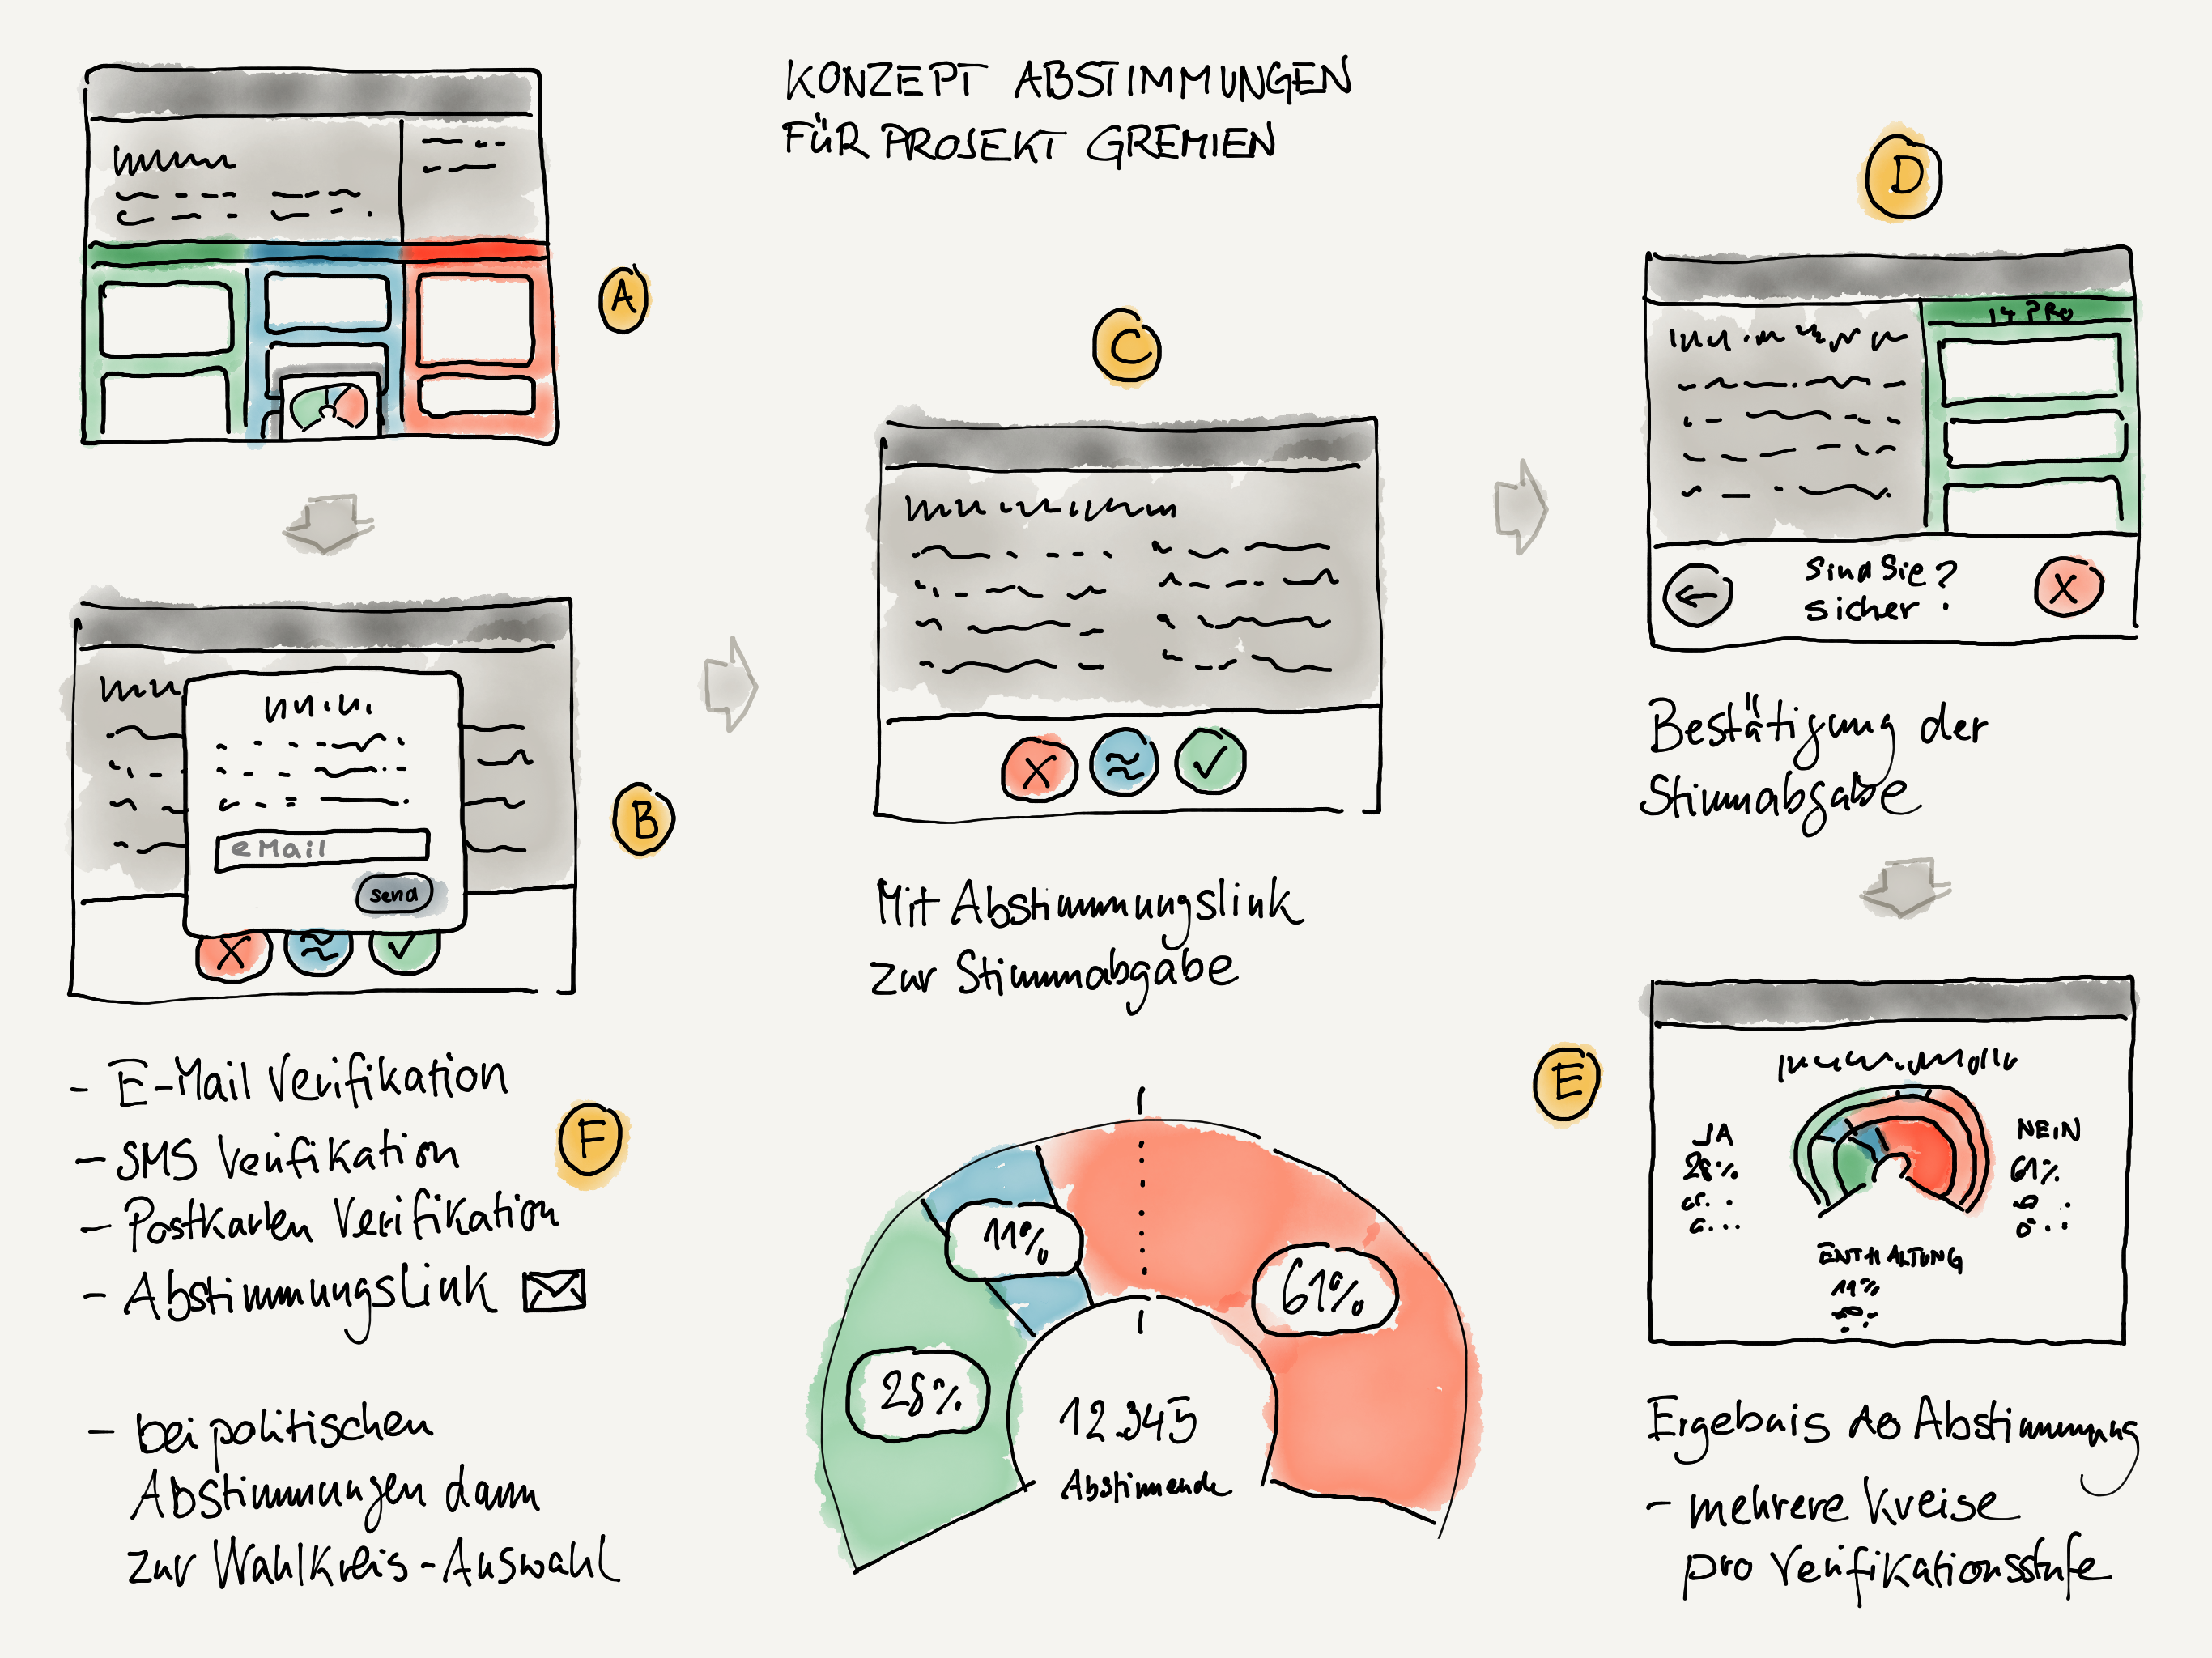 KONZEPT ABSTIMMUNGEN
FÜR PROJEKT GREMIEN
A
eMail
send
B
- E-Mail Verifikation
- SMS Verifikation
- Postkarten Verifikation
- Abstimmungslink
F
- bei politischen
Abstimmungen dann
zur Wahlkreis-Auswahl
C
Mit Abstimmungslink
zur Stimmabgabe
28%
11%
61%
12.345
Abstimmende
D
14 PRO
Sind Sie
sicher ?
Bestätigung der
Stimmabgabe
E
JA
28%
NEIN
61%
ENTHALTUNG
11%
Ergebnis der Abstimmung
- mehrere Kreise
pro Verifikationsstufe